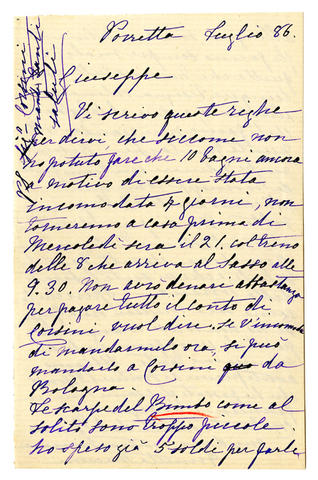 Porretta Luglio 86.
Giuseppe
Vi scrivo queste righe
per dirvi, che siccome non
ho potuto fare che 10 bagni ancora
a motivo di essere stata
incomodata 7 giorni, non
torneremo a casa prima di
Mercoledì sera il 21. col treno
delle 8 che arriva al Sasso alle
9.30. Non avrò denari abbastanza
per pagare tutto il conto di
Corsini vuol dire, se V'incomoda
di mandarmelo ora, si può
mandarlo a Corsini da
Bologna.
Le scarpe del Bimbo come al
solito sono troppo piccole
ho speso già 5 soldi per farle
Corsini
manda tanti
saluti